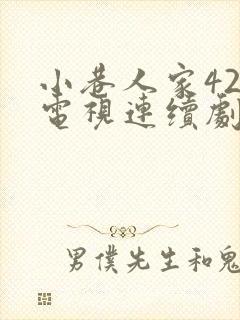 小巷人家42
電視連續劇
男僕先生和鬼